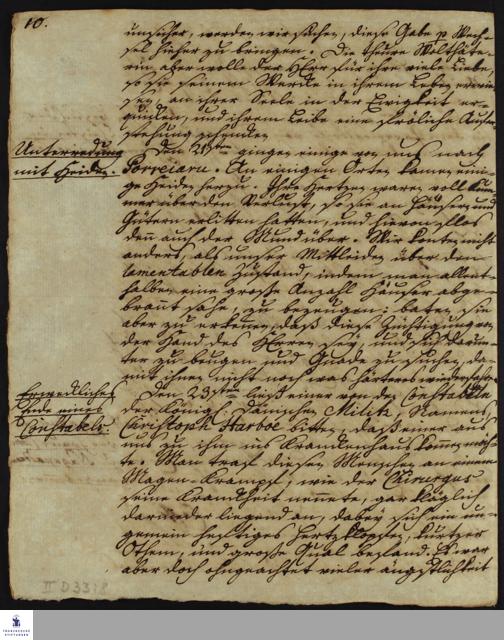 10.
unsicher, werden wir suchen, diese Gabe p Wech-
sel hieher zu bringen. Die theure Wolthäte-
rin aber wolle der HErr für ihre viele Liebe,
so sie seinem Wercke in ihrem Leben erwie-
sen, an ihrer Seele in der Ewigkeit er-
quicken, und ihrem Leibe eine fröliche Aufer-
stehung schencken.
Unterredung
mit Heiden.
Den 21sten gingen einige von uns nach
Porreiaru. An einigen Orten kamen eini-
ge Heiden herzu. Ihre Hertzen waren voll Kum-
mer über den Verlust, so sie an Häusern und
Gütern erlitten hatten, und hievon floß
denn auch der Mund über. Wir konten nicht
anders, als unser Mitleiden über den
lamentablen Zustand, indem man allent-
halben eine große Anzahl Häuser abge-
brannt sahe, zu bezeugen: baten sie
aber zu erkennen, daß diese Züchtigung von
der Hand des HErrn sey, und sich darun-
ter zu beugen und Gnade zu suchen, da-
mit ihnen nicht noch was härteres
Erweckliches
Ende eines
Constabels.
Den 23sten ließ einer von den Constabeln
der Königl. Dänischen Militz, Namens
Christoph Harboe bitten, daß einer aus
uns zu ihm ins Kranckenhaus kommen möch-
te. Man traf diesen Menschen an einem
Magen-Krampf, wie der Chirurgus
seine Kranckheit nennete, gar kläglich
darnieder liegend an, dabey sich ein un-
gemein heftiges Hertzklopfen, kurtzer
Othem, und große Qual befand. Er war
aber doch ohngeachtet vieler ängstlichkeit
II D 33:8
FRANCKESCHE
STIFTUNGEN